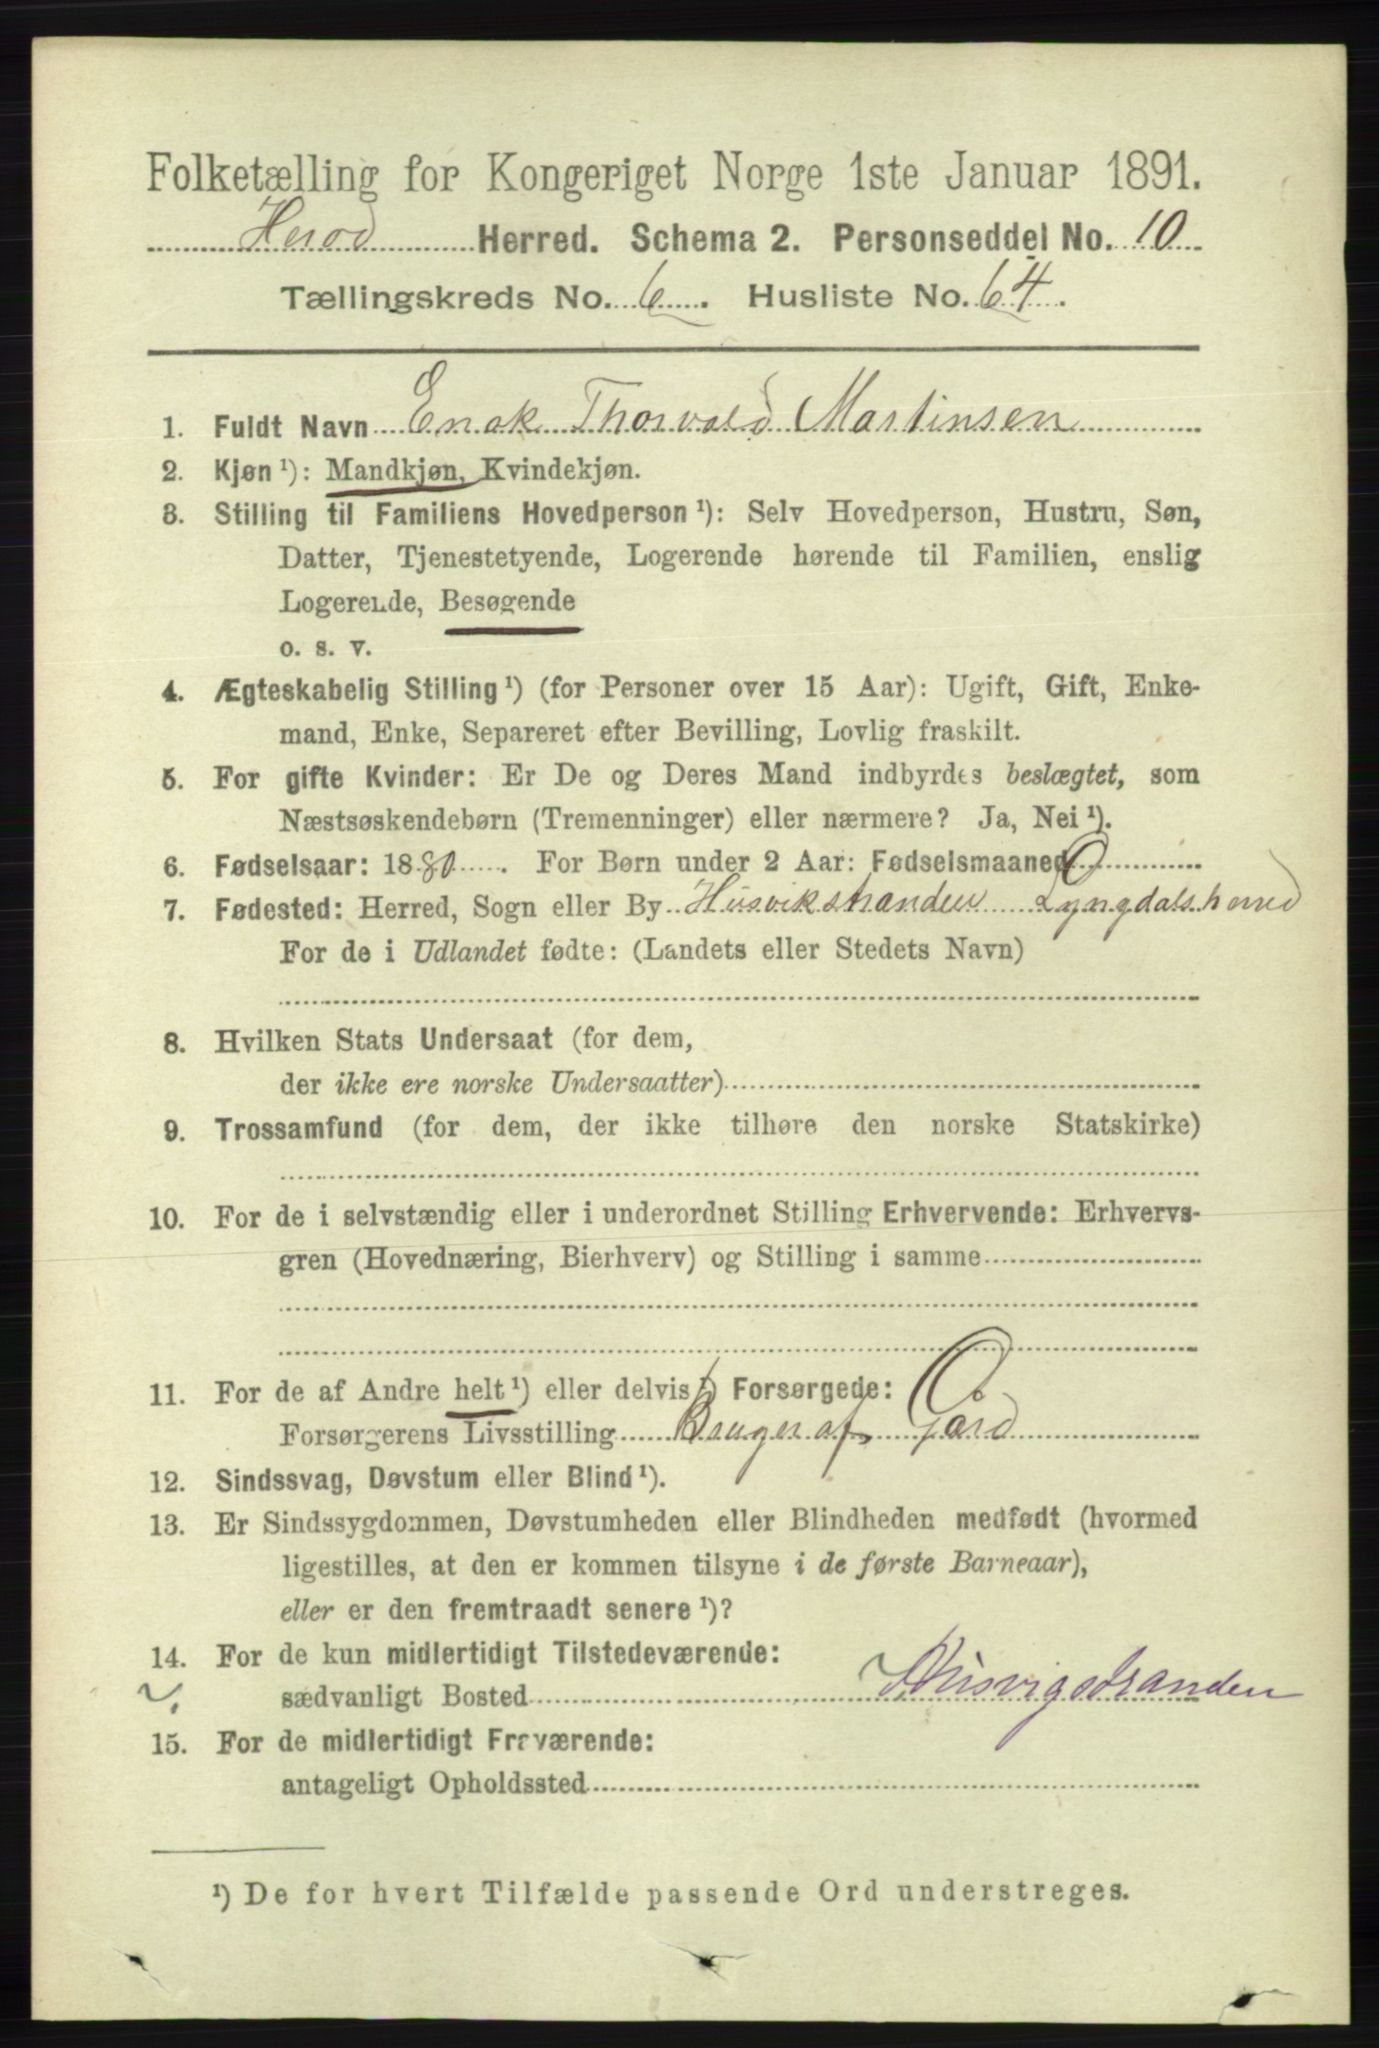 Folketælling for Kongeriget Norge 1ste Januar 1891.
Herod Herred. Schema 2. Personseddel No. 10
Tællingskreds No. 6. Husliste No. 64.
1. Fuldt Navn Enok Thorvald Martinsen
2. Kjøn ¹): Mandkjøn, Kvindekjøn.
3. Stilling til Familiens Hovedperson ¹): Selv Hovedperson, Hustru, Søn,
Datter, Tjenestetyende, Logerende hørende til Familien, enslig
Logerende, Besøgende
o. s. v.
4. Ægteskabelig Stilling ¹) (for Personer over 15 Aar): Ugift, Gift, Enke-
mand, Enke, Separeret efter Bevilling, Lovlig fraskilt.
5. For gifte Kvinder: Er De og Deres Mand indbyrdes beslægtet, som
Næstsøskendebørn (Tremenninger) eller nærmere? Ja, Nei ¹).
6. Fødselsaar: 1880. For Børn under 2 Aar: Fødselsmaaned O
7. Fødested: Herred, Sogn eller By Husvikstranden Lyngdalsherred
For de i Udlandet fødte: (Landets eller Stedets Navn)
8. Hvilken Stats Undersaat (for dem,
der ikke ere norske Undersaatter)
9. Trossamfund (for dem, der ikke tilhøre den norske Statskirke)
10. For de i selvstændig eller i underordnet Stilling Erhvervende: Erhvervs-
gren (Hovednæring, Bierhverv) og Stilling i samme
11. For de af Andre helt ¹) eller delvis ¹) Forsørgede:
Forsørgerens Livsstilling Bruger af Gård
12. Sindssvag, Døvstum eller Blind ¹).
13. Er Sindssygdommen, Døvstumheden eller Blindheden medfødt (hvormed
ligestilles, at den er kommen tilsyne i de første Barneaar),
eller er den fremtraadt senere ¹)?
14. For de kun midlertidigt Tilstedeværende:
sædvanligt Bosted Husvigstranden
15. For de midlertidigt Fraværende:
antageligt Opholdssted
¹) De for hvert Tilfælde passende Ord understreges.